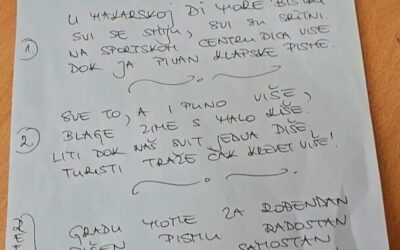 U MAKARSKOJ DI MORE
SVI SE SMIJU, SVI SU SRITNI.
1 NA SPORTSKOM CENTRU DICA VISE
DOK JA PIVAN KLAPSKE PISME.
SVE TO, A I PUNO VIŠE,
2 BLAGE ZIME S MALO KIŠE.
LITI DOK NAŠ SVIT JEDVA DIŠE
TURISTI TRAŽE ČAK KREVET VIŠE!
GRADU MOME ZA ROĐENDAN
PIŠEN PISMU RADOSTAN
SAMOSTAN